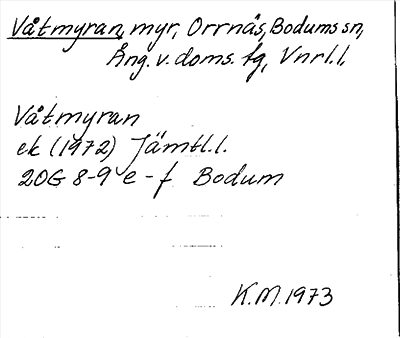 Våtmyran, myr, Orrnäs, Bodums sn,
Ång. v. doms. tg, Vnrl. l,
Våtmyran
ek (1972) Jämtl. l.
20G 8-9 e - f Bodum
K.M. 1973